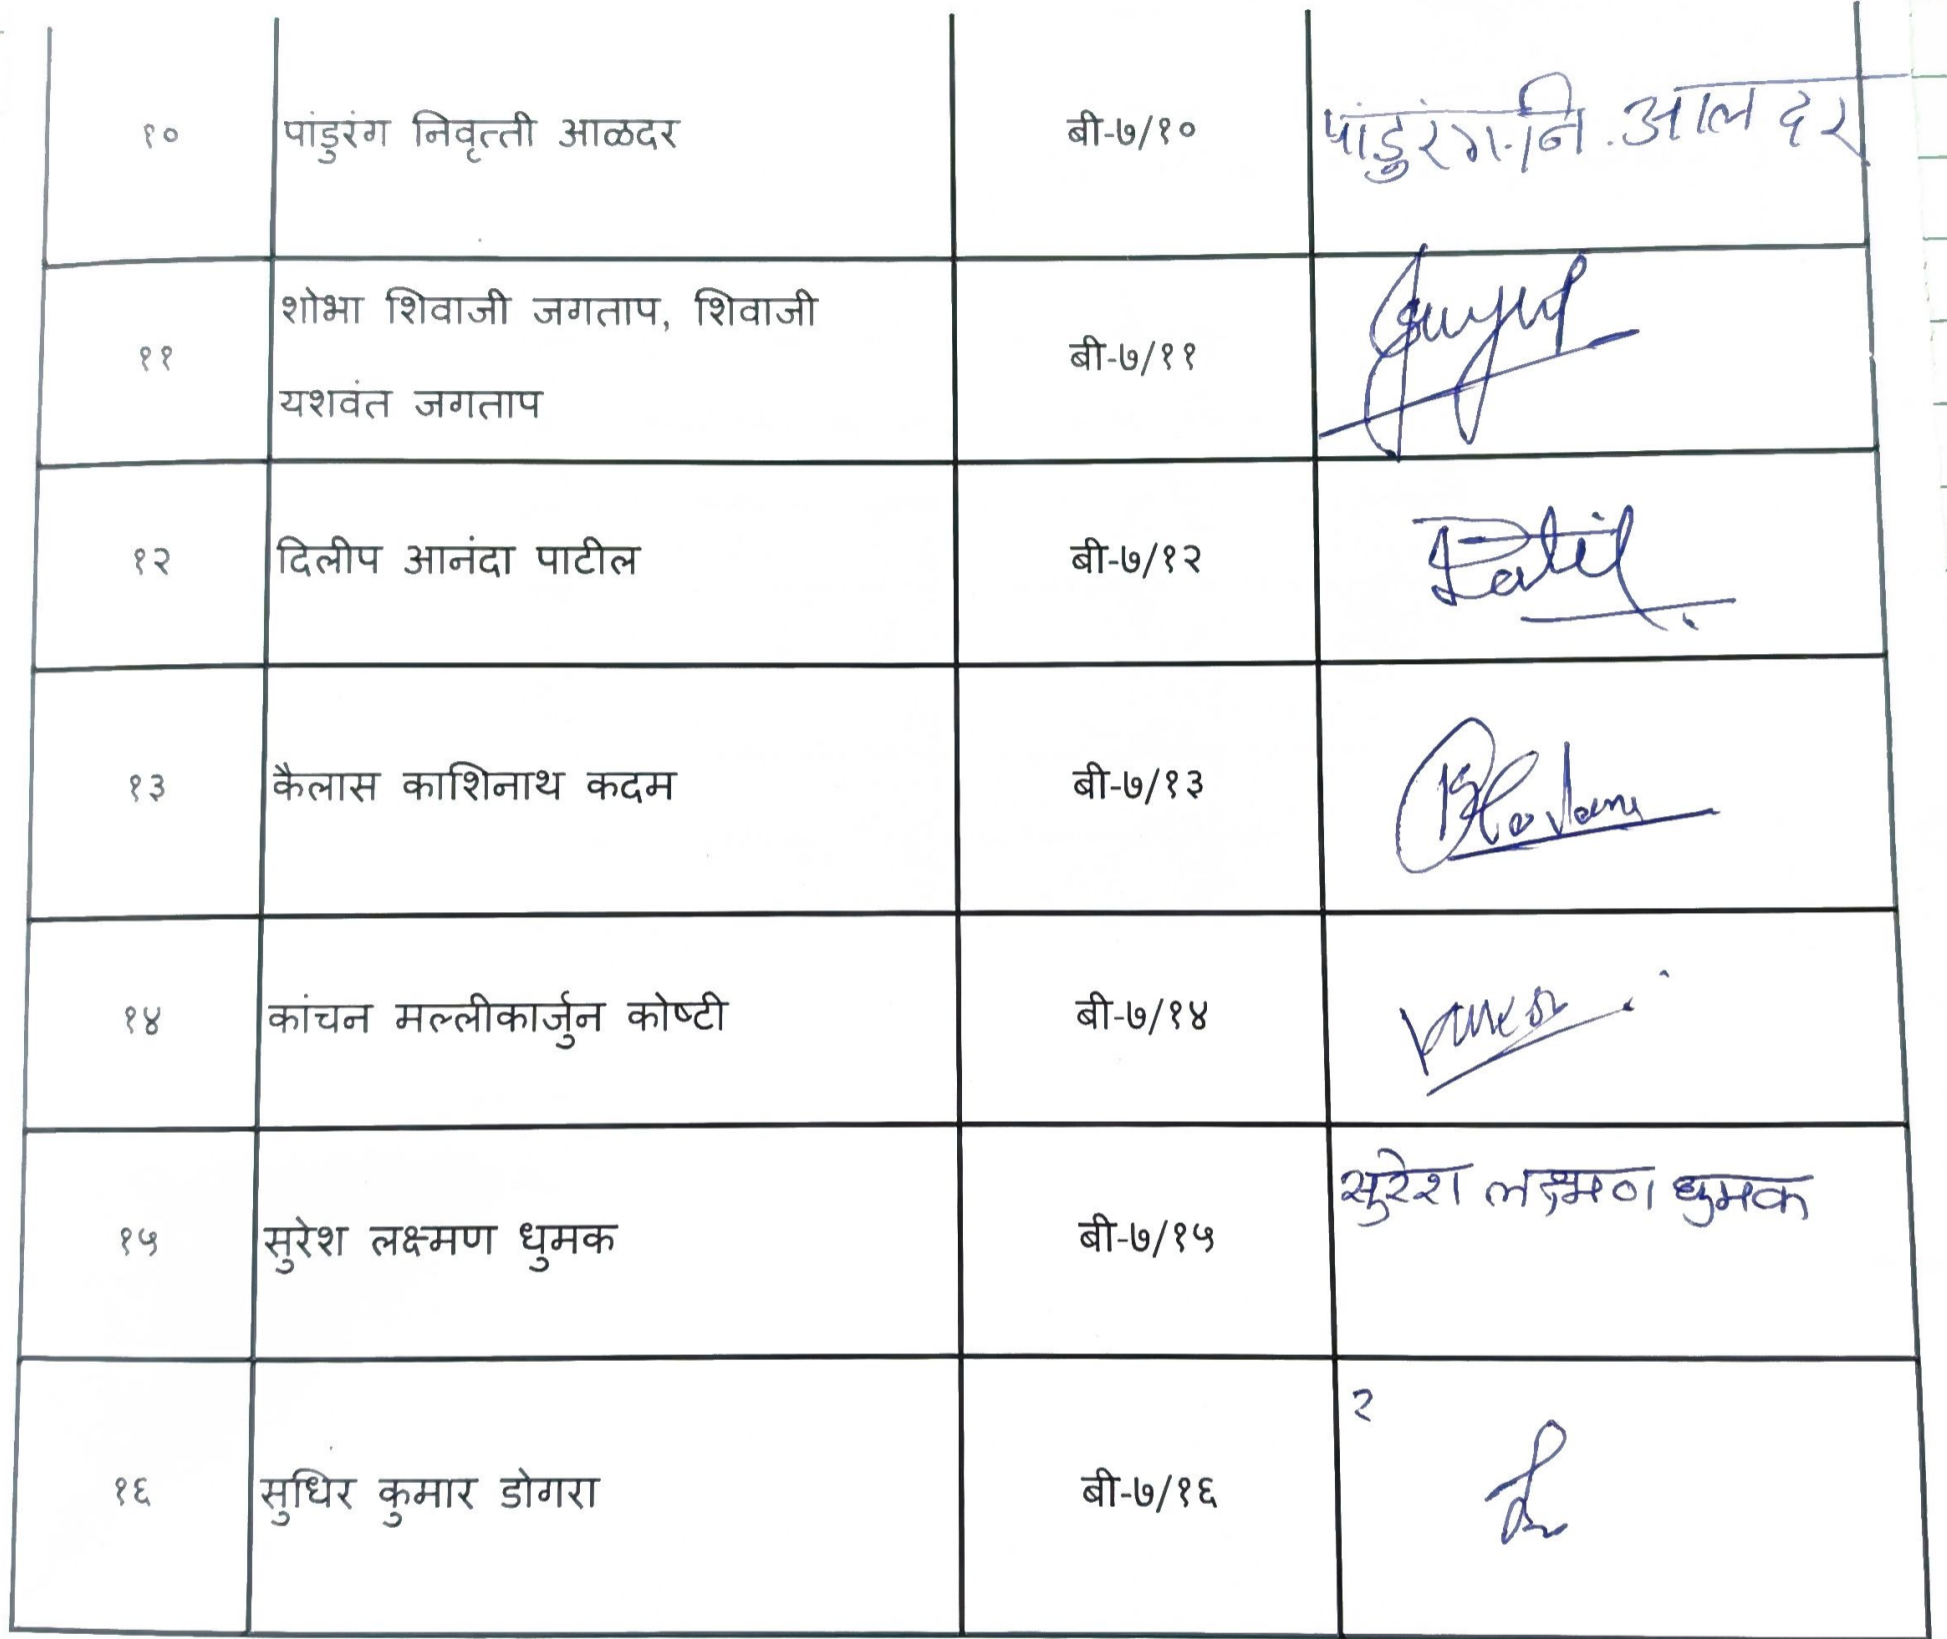 १० पांडुरंग निवृत्ती आळदर बी-७/१० पांडुरंग.नि.आलदर
शोभा शिवाजी जगताप, शिवाजी
११ बी-७/११
यशवंत जगताप
१२ दिलीप आनंदा पाटील बी-७/१२ Patil
१३ कैलास काशिनाथ कदम बी-७/१३
१४ कांचन मल्लीकार्जुन कोष्टी बी-७/१४
सुरेश लक्ष्मण धुमक
१५ सुरेश लक्ष्मण धुमक बी-७/१५
२
१६ सुधिर कुमार डोगरा बी-७/१६